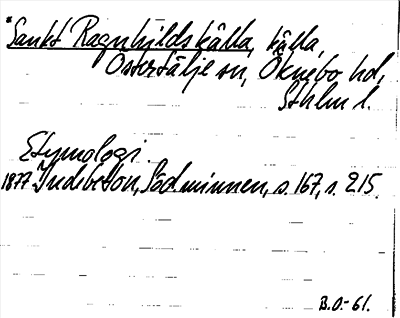 "Sankt Ragnhilds källa, källa,
Östertälje sn, Öknebo hd,
Sthlm l.
Etymologi.
1877 Indebetou, Söd.minnen, s. 167, s. 215.
B.O.-61.